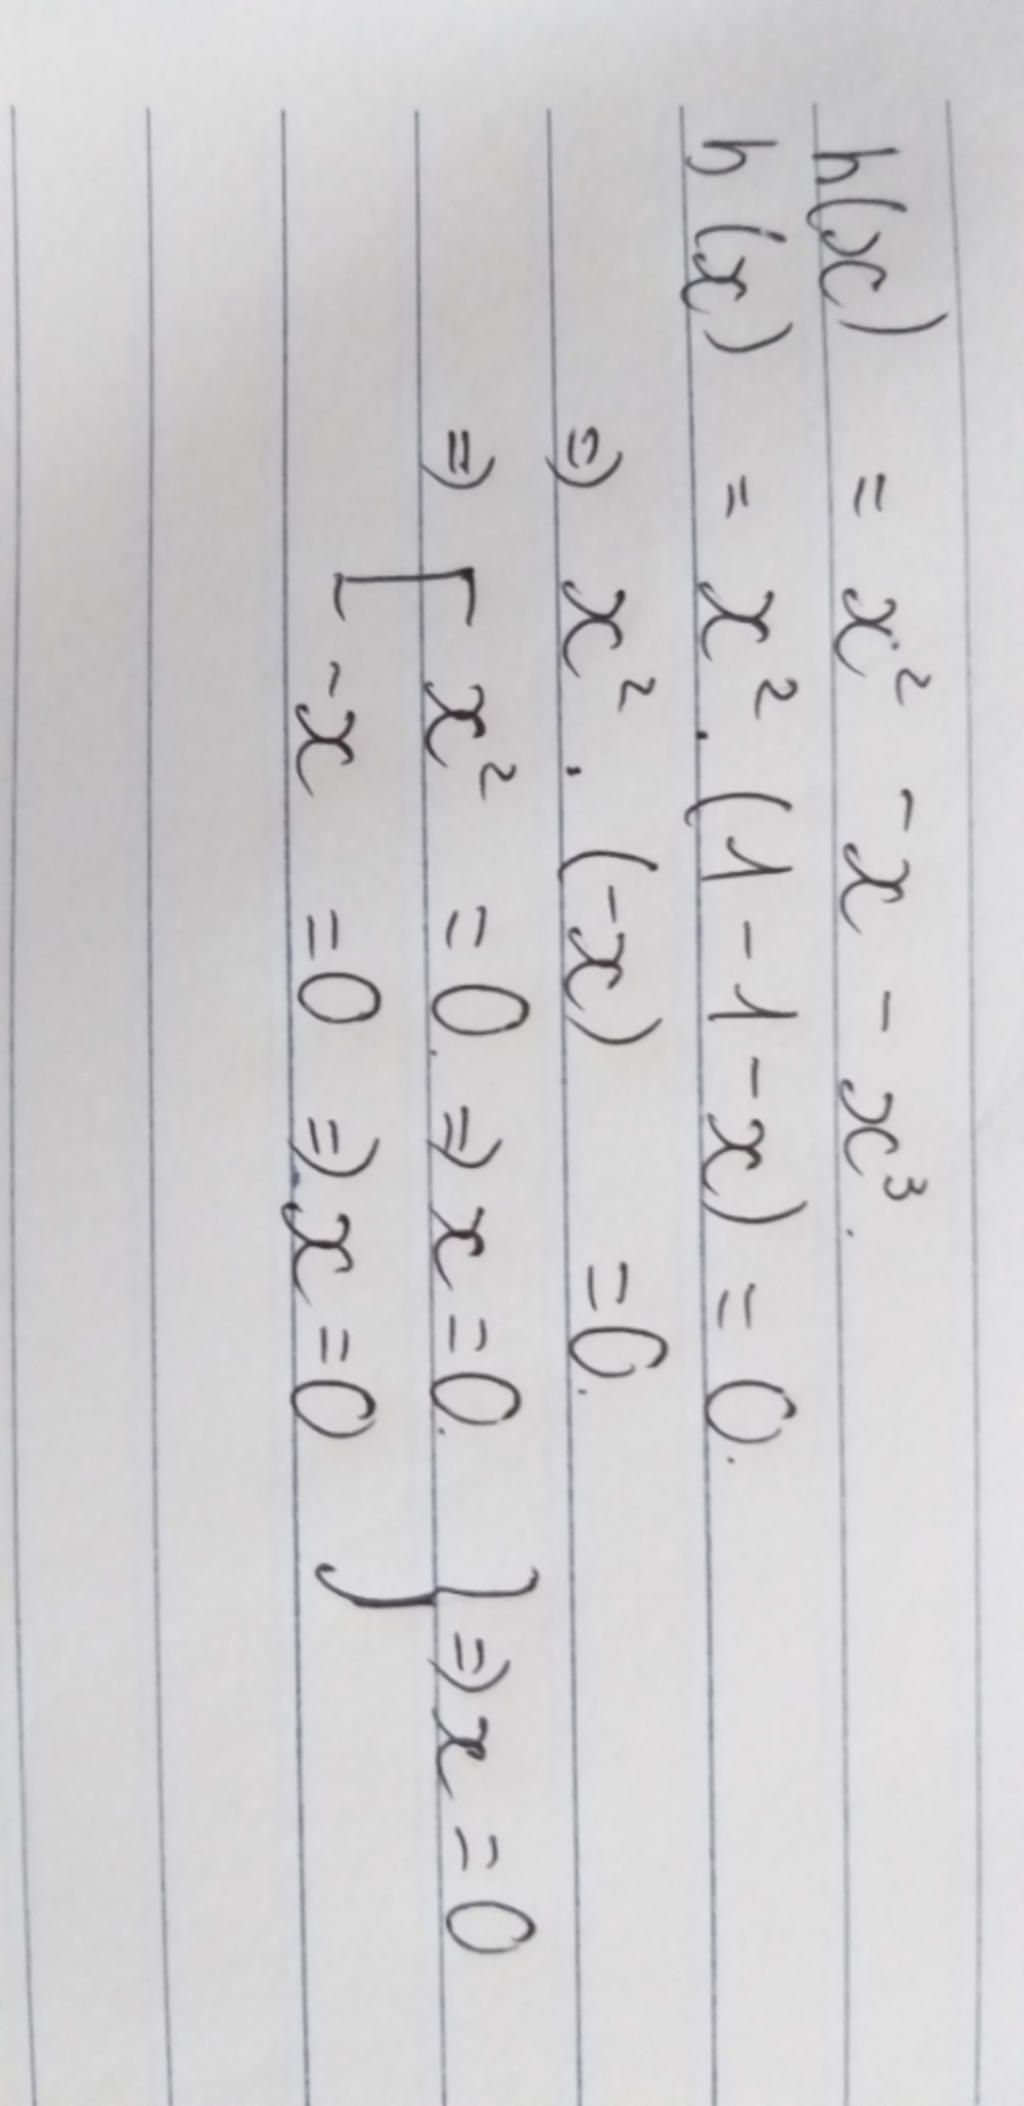 h(x) = x² - x - x³.
h(x) = x² . (1 - 1 - x) = 0.
=> x² . (-x) = 0.
=> [ x² = 0. => x = 0. } => x = 0
-x = 0 => x = 0